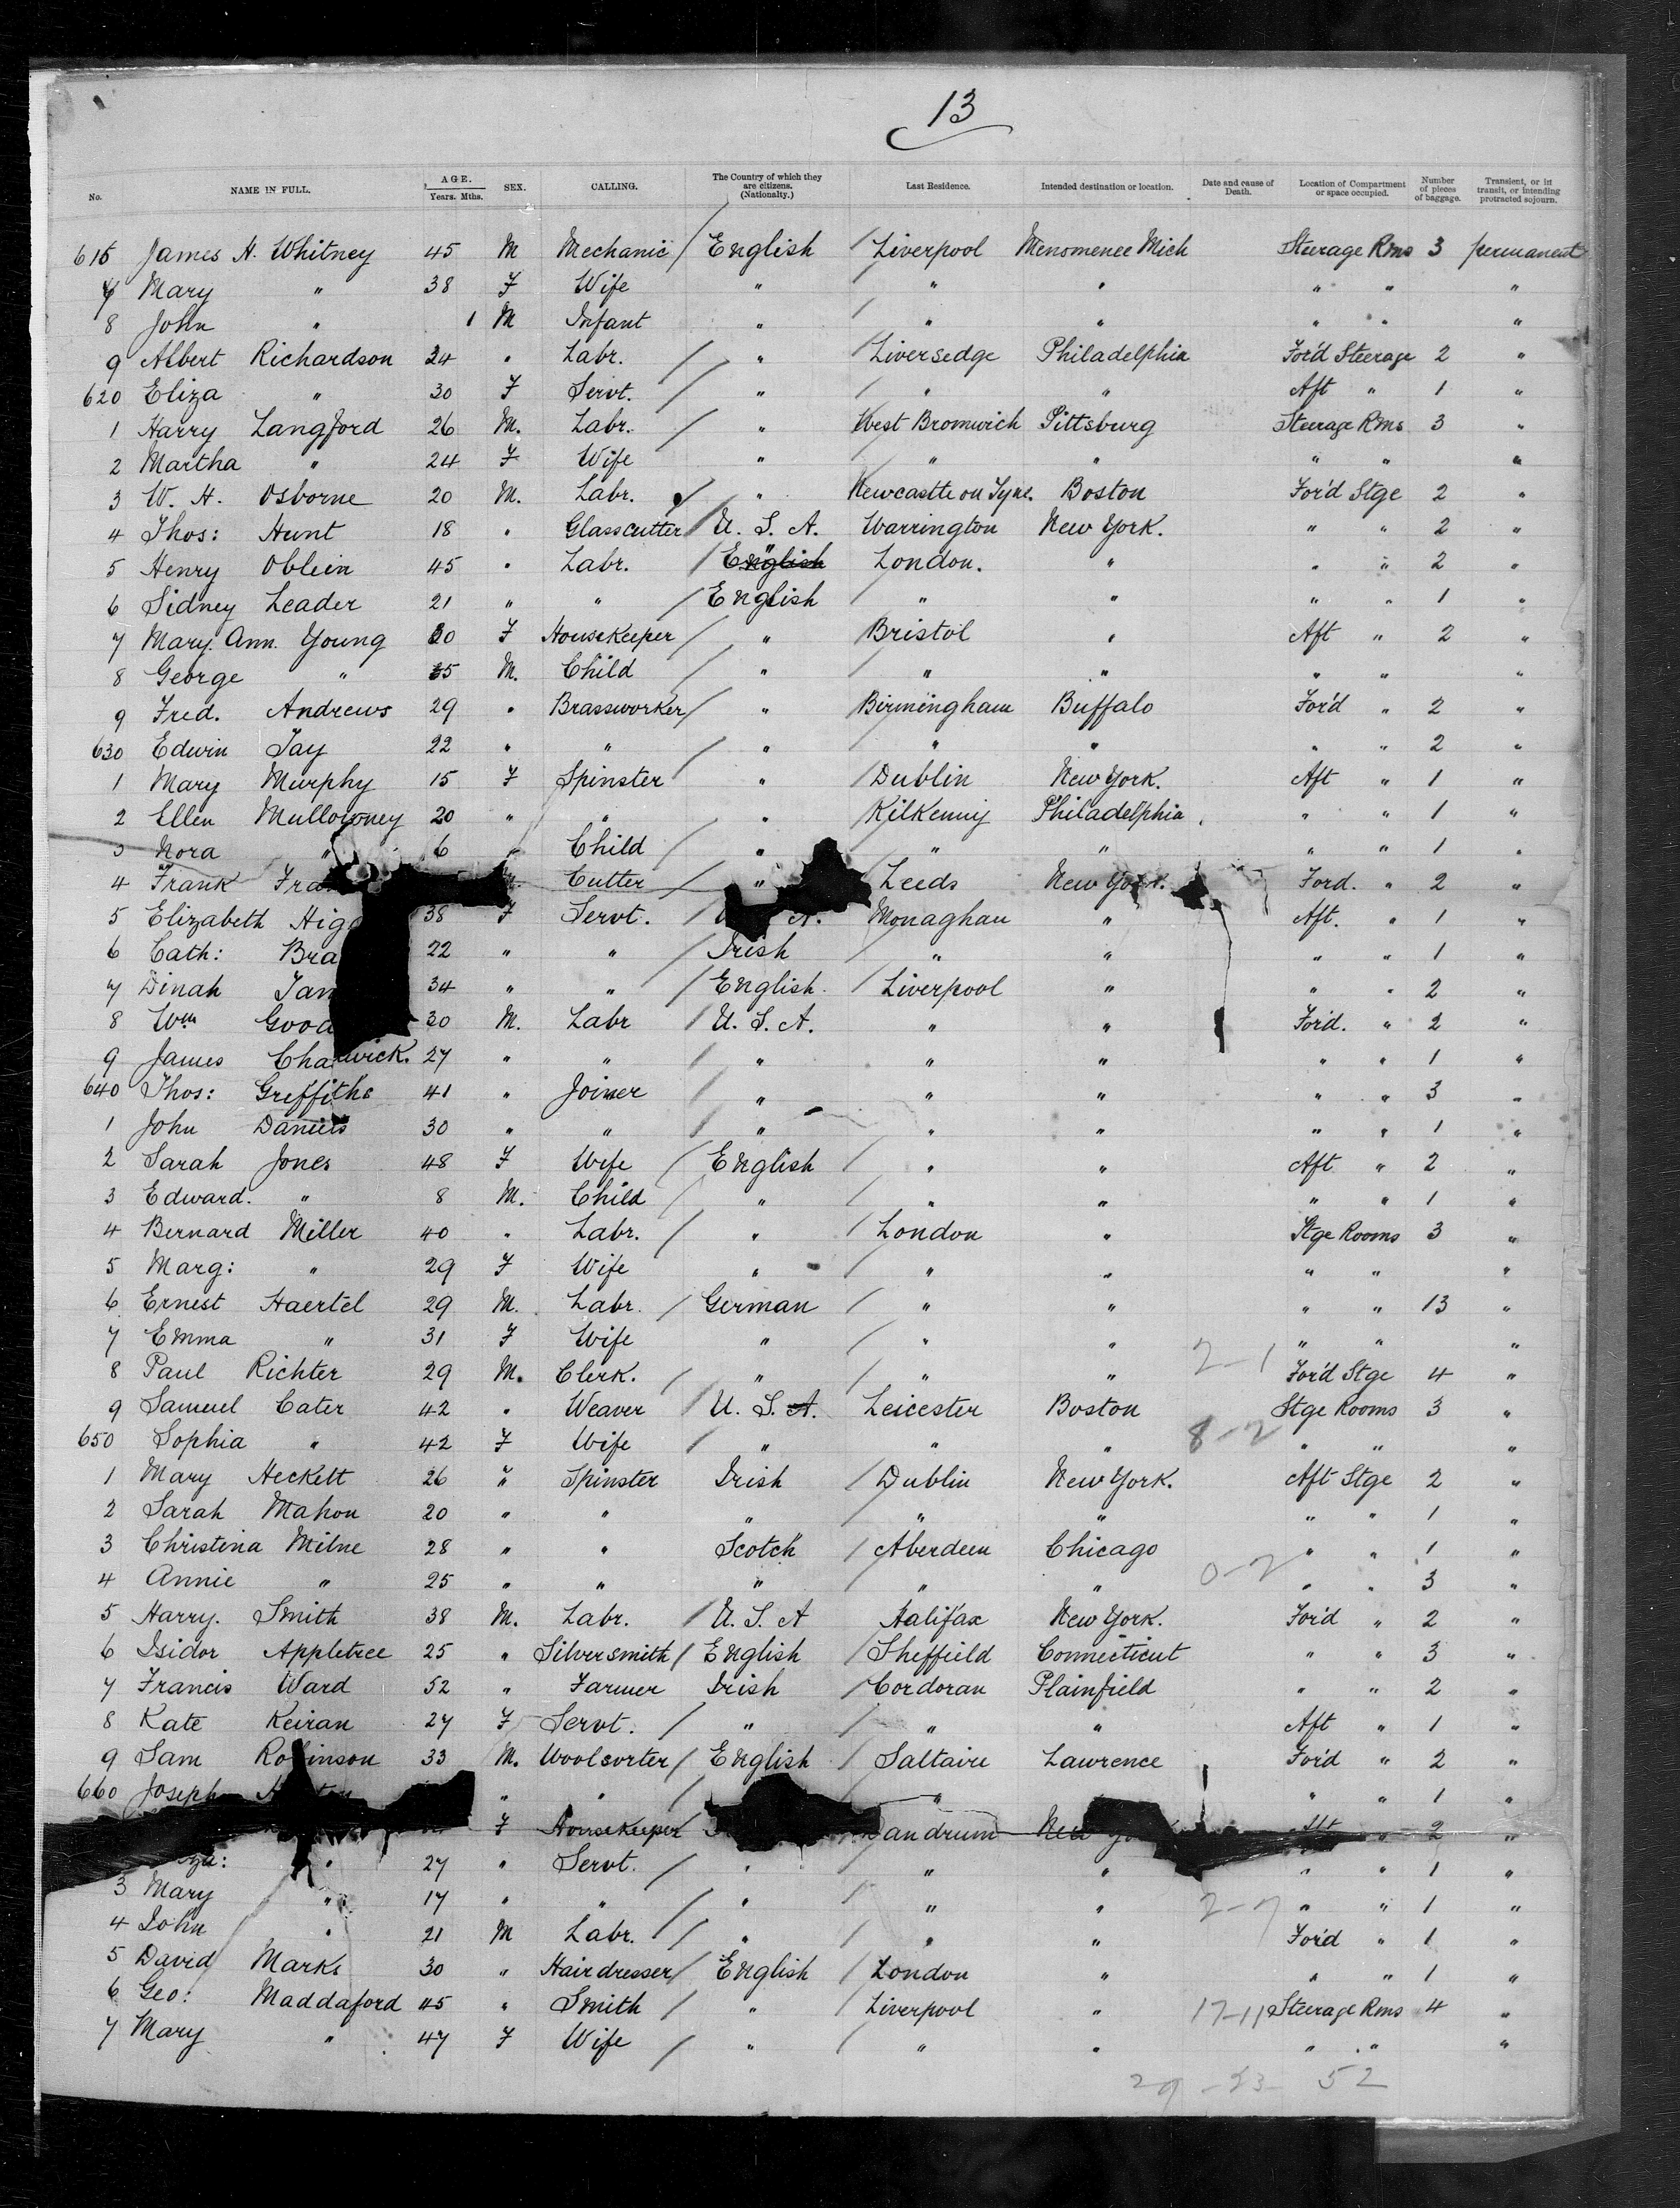 13
No. NAME IN FULL. AGE. Years. Mths. SEX. CALLING. The Country of which they are citizens. (Nationalty.) Last Residence. Intended destination or location. Date and cause of Death. Location of Compartment or space occupied. Number of pieces of baggage. Transient, or in transit, or intending protracted sojourn.
615 James H. Whitney 45 M Mechanic / English / Liverpool Menomenee Mich Steerage Rms 3 permanent
7 Mary " 38 F Wife " " " " " "
8 John " 1 M Infant " " " " " "
9 Albert Richardson 24 " Labr. / " / Liversedge Philadelphia For'd Steerage 2 "
620 Eliza " 30 F Servt. / " / " " Aft " 1 "
1 Harry Langford 26 M. Labr. / " West Bromwich Pittsburg Steerage Rms 3 "
2 Martha " 24 F Wife " " " " " "
3 W. H. Osborne 20 M. Labr. / " Newcastle on Tyne. Boston For'd Stge 2 "
4 Thos: Hunt 18 " Glasscutter / U. S. A. Warrington New York. " " 2 "
5 Henry Oblein 45 " Labr. / English " London. " " " 2 "
6 Sidney Leader 21 " " / English / " " " " 1 "
7 Mary. Ann. Young 30 F HouseKeeper / " Bristol " Aft " 2 "
8 George " 5 M. Child / " / " " " " "
9 Fred. Andrews 29 " Brassworker / " / Birmingham Buffalo For'd " 2 "
630 Edwin Jay 22 " " / " / " " " " 2 "
1 Mary Murphy 15 F Spinster " / Dublin New York. Aft " 1 "
2 Ellen Mullowney 20 " " " Kilkenny Philadelphia " " 1 "
3 Nora " 6 " Child / " " " " " 1 "
4 Frank Cutter / " / Leeds New York. Ford. " 2 "
5 Elizabeth 38 F Servt. / A. / Monaghan " Aft. " 1 "
6 Cath: 22 " " / Irish / " " " " 1 "
7 Dinah 34 " " / English / Liverpool " " " 2 "
8 Wm 30 M. Labr / U. S. A. " " For'd. " 2 "
9 James Chadwick. 27 " " / " " " " " 1 "
640 Thos: Greffiths 41 " Joiner / " " " " " 3 "
1 John Daniels 30 " " / " " " " " 1 "
2 Sarah Jones 48 F Wife / English / " " Aft " 2 "
3 Edward. " 8 M. Child / " / " " " " 1 "
4 Bernard Miller 40 " Labr. / " / London " Stge Rooms 3 "
5 Marg: " 29 F Wife " / " " " " "
6 Ernest Haertel 29 M. Labr. / German / " " " " 13 "
7 Emma " 31 F Wife " / " " 2-1 " " "
8 Paul Richter 29 M. Clerk. / " / " " For'd Stge 4 "
9 Samuel Cater 42 " Weaver / U. S. A. Leicester Boston Stge Rooms 3 "
650 Sophia " 42 F Wife / " " " 8-2 " " "
1 Mary Heckett 26 " Spinster Irish / Dublin New York. Aft Stge 2 "
2 Sarah Mahon 20 " " " / " " " " 1 "
3 Christina Milne 28 " " Scotch / Aberdeen Chicago " " 1 "
4 Annie " 25 " " " / " " 0-2 " " 3 "
5 Harry. Smith 38 M. Labr. / U. S. A Halifax New York. For'd " 2 "
6 Isidor Appletree 25 " Silversmith / English / Sheffield Connecticut " " 3 "
7 Francis Ward 52 " Farmer Irish / Cordoran Plainfield " " 2 "
8 Kate Keiran 27 F Servt. / " / " " Aft " 1 "
9 Sam Robinson 33 M. Woolsorter / English / Saltaire Lawrence For'd " 2 "
660 Joseph " " / / " " " 1 "
F HouseKeeper New York Aft " 2 "
" 27 " Servt. / " / " " " " 1 "
3 Mary " 17 " " / " / " " 2-7 " " 1 "
4 John " 21 M Labr. / " / " " For'd " 1 "
5 David Marks 30 " Hairdresser / English / London " " " 1 "
6 Geo: Maddaford 45 " Smith / " / Liverpool " 17-11 Steerage Rms 4 "
7 Mary " 47 F Wife / " / " " " " "
29-23- 52